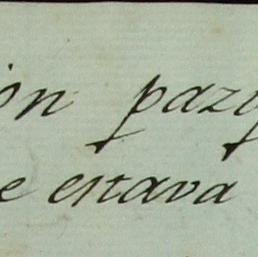 ón pazy
e estava